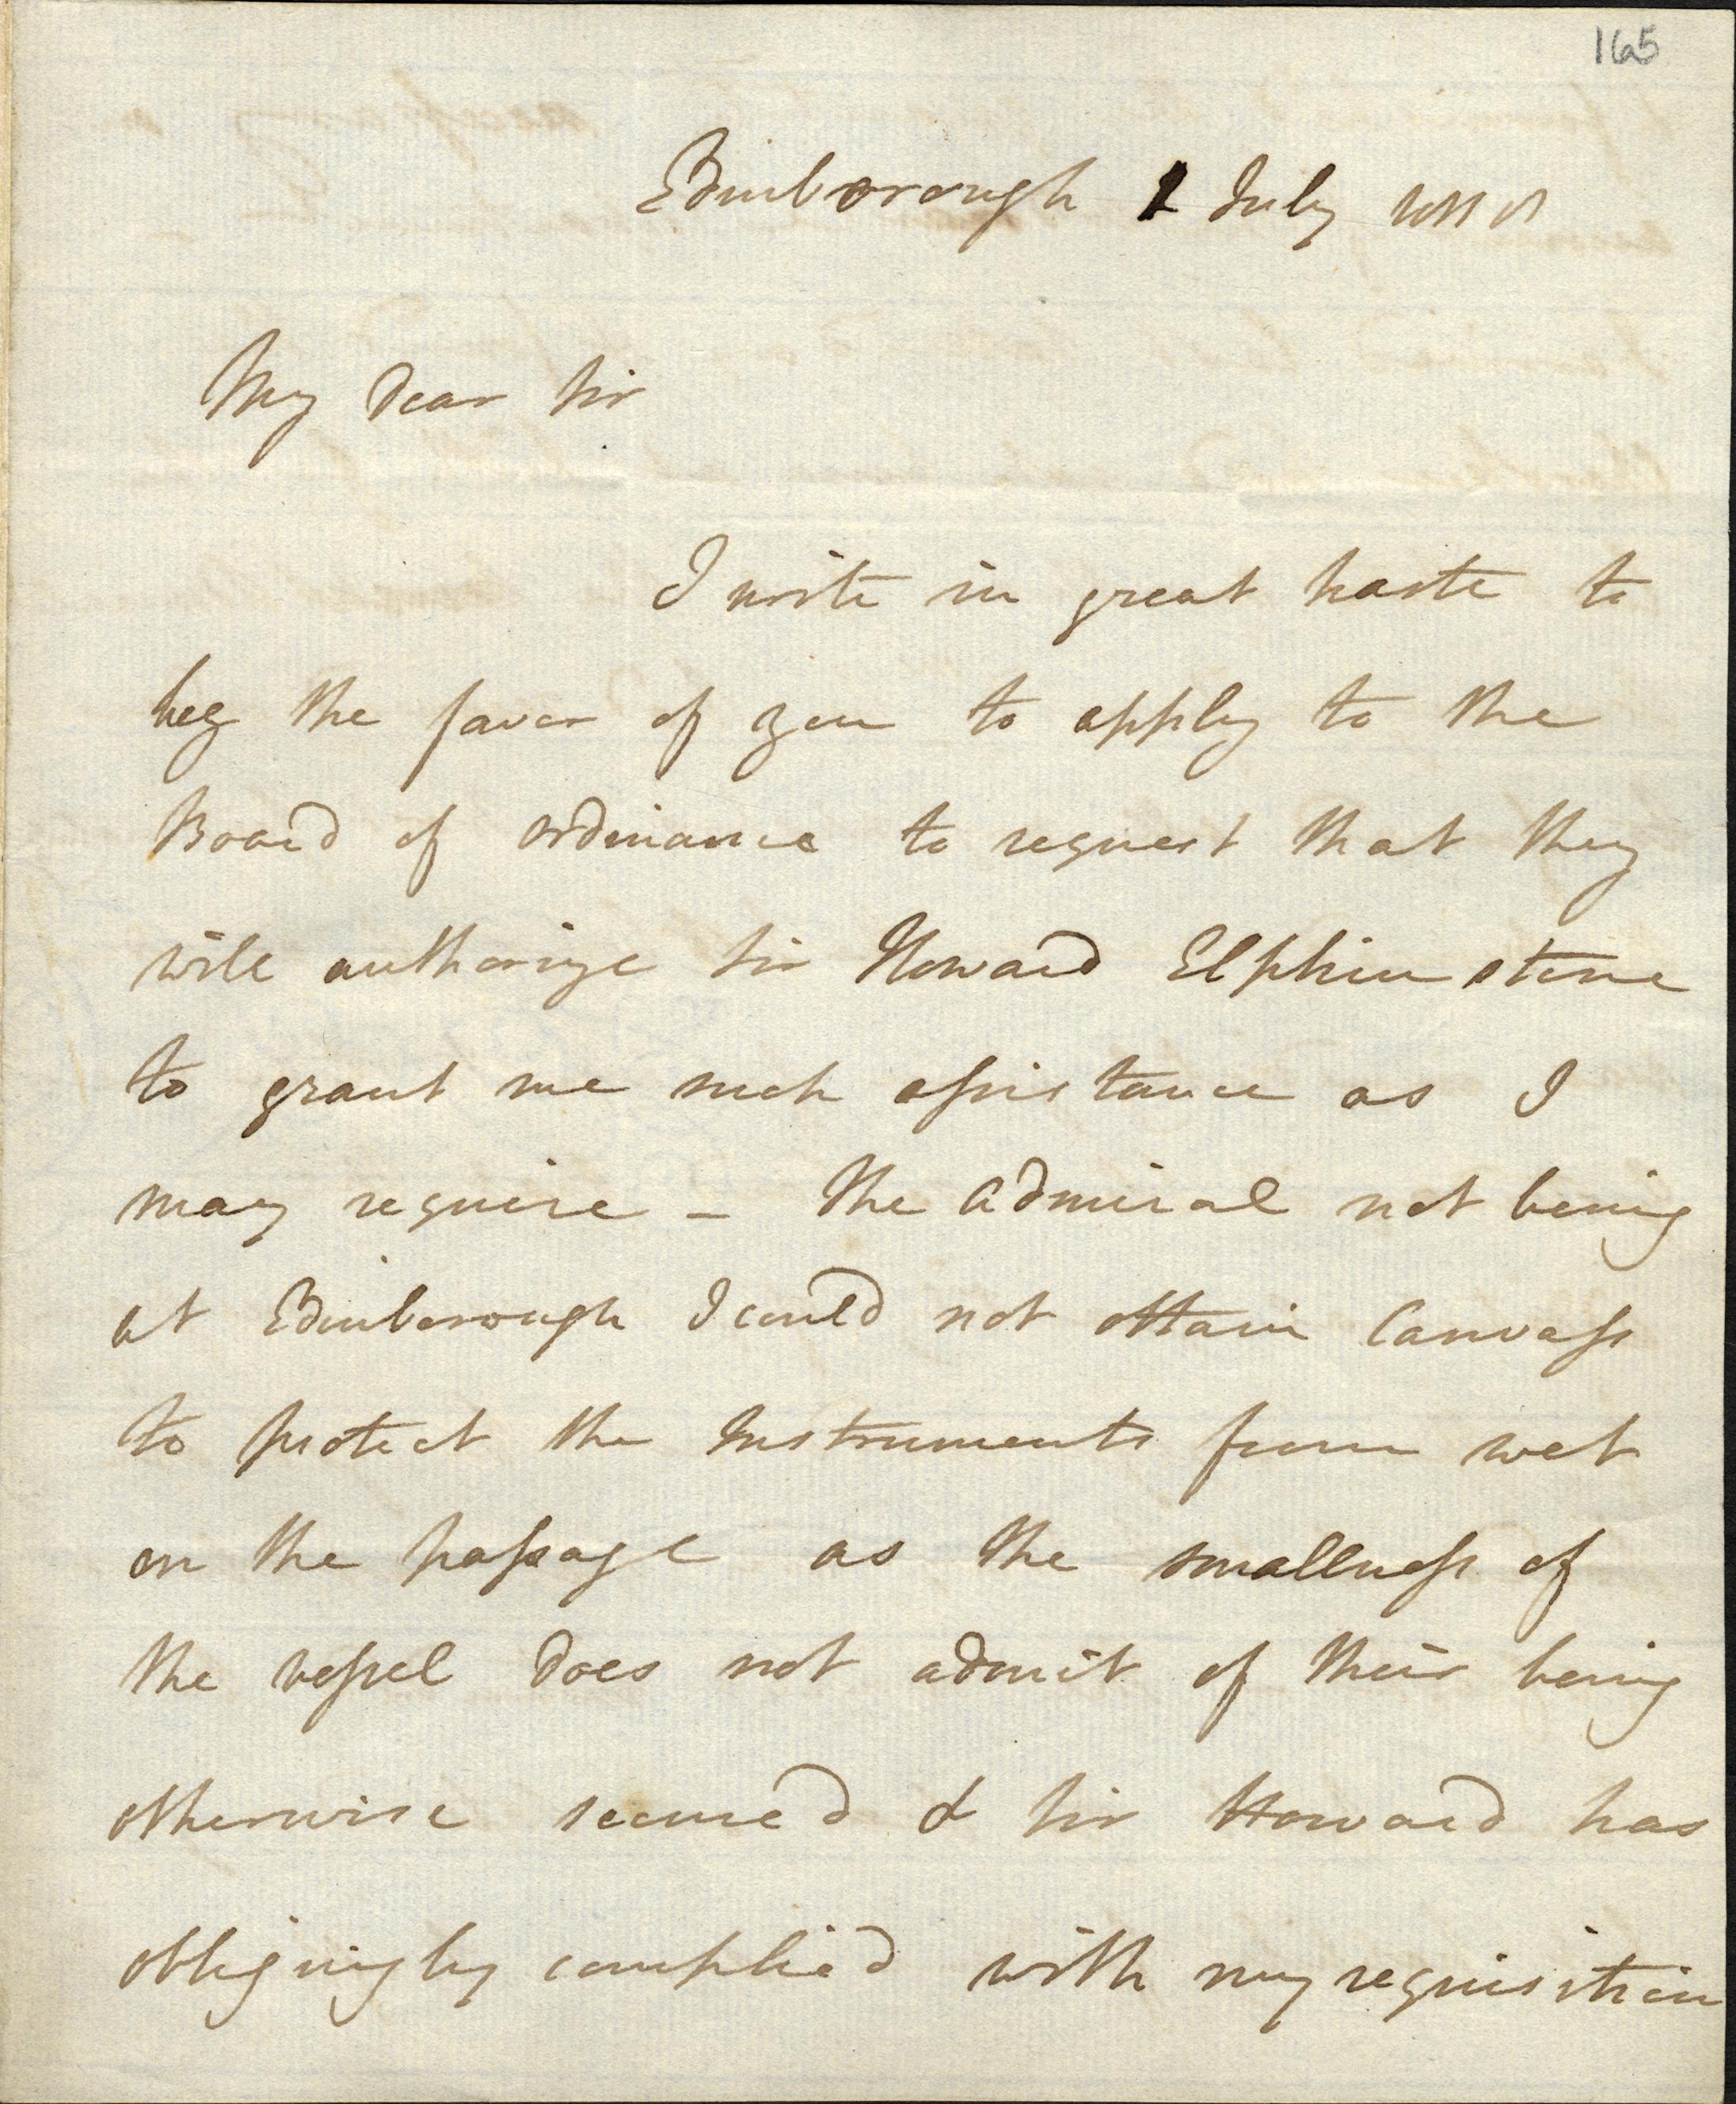 165
Edinborough 1 July 1818
My Dear Sir
I write in great haste to
beg the favor of you to apply to the
Board of Ordinance to request that they
will authorize Sir Howard Elphinstone
to grant me such assistance as I
may require – The Admiral not being
at Edinborough I could not obtain Canvass
to protect the Instruments from wet
on the passage as the smallness of
the vessel does not admit of their being
otherwise secured & Sir Howard has
obligingly complied with my requisition